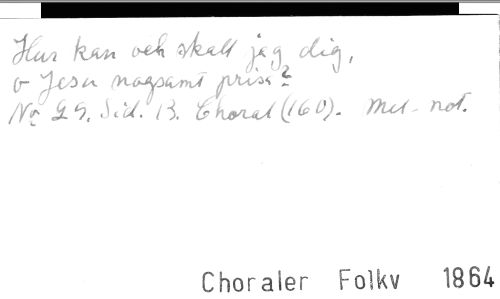 Hur kan och skall jag dig,
o Jesu nogsamt prisa?
No 29. Sid. 13. Choral (160). Mel. not.
Choraler Folkv 1864